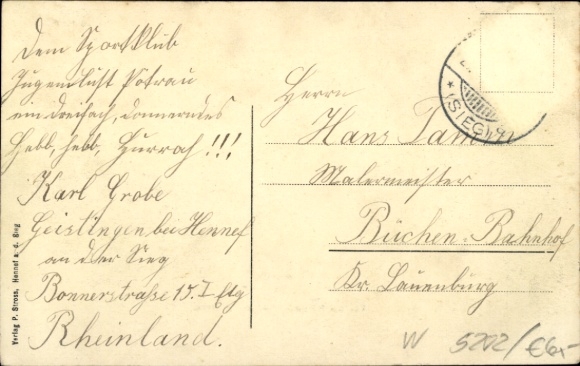 Dem Sportklub
Jugendlust Potrau
ein dreifach, donnerndes
Hebb, hebb, Hurrah!!!
Karl Grobe
Geistingen bei Hennef
an der Sieg
Bonnerstraße 15. I Etg
Rheinland.
Verlag P. Stross, Hennef a. d. Sieg
* (SIEG)
Herrn
Hans
Malermeister
Büchen-Bahnhof
Kr. Lauenburg
W 5202/€6,-